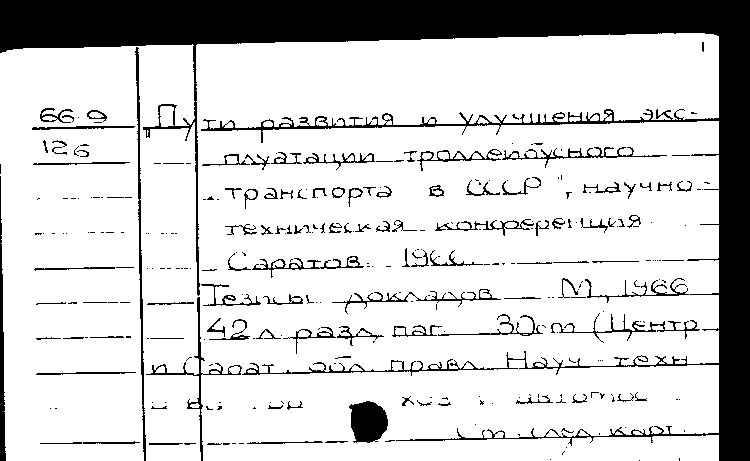 66-9 „Пути развития и улучшения экс-
126 плуатации троллейбусного
транспорта в СССР", научно-
техническая конференция
Саратов. 1966.
Тезисы докладов М, 1966
42 л разд. паг. 30 cm (Центр
и Сарат. обл. правл. Науч-техн
См. след. карт.